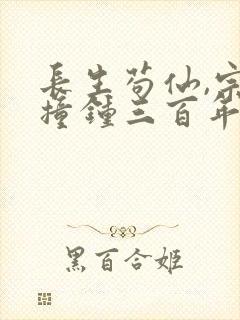 長生苟仙,宗
撞鍾三百年
黑百合姬